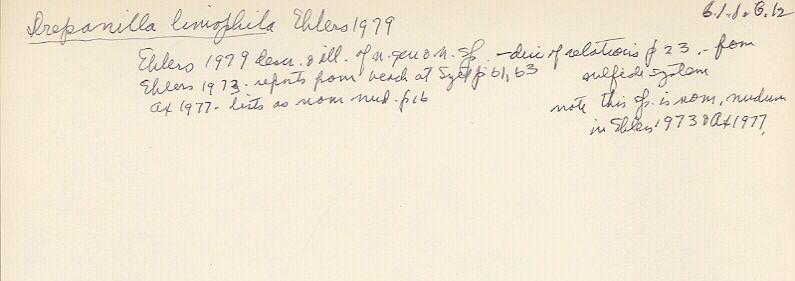 Drepanilla limophila Ehlers 1979
6.1.1.B.12
Ehlers 1979 descr. & ill. of n. gen & n. sp. - disc. of relations p 23 - from
sulfide system
Ehlers 1973 - reports from beach at Sylt p 61, 63
Ax 1977 - lists as nom. nud. p 16
note this sp. is nom. nudum
in Ehlers 1973 & Ax 1977.